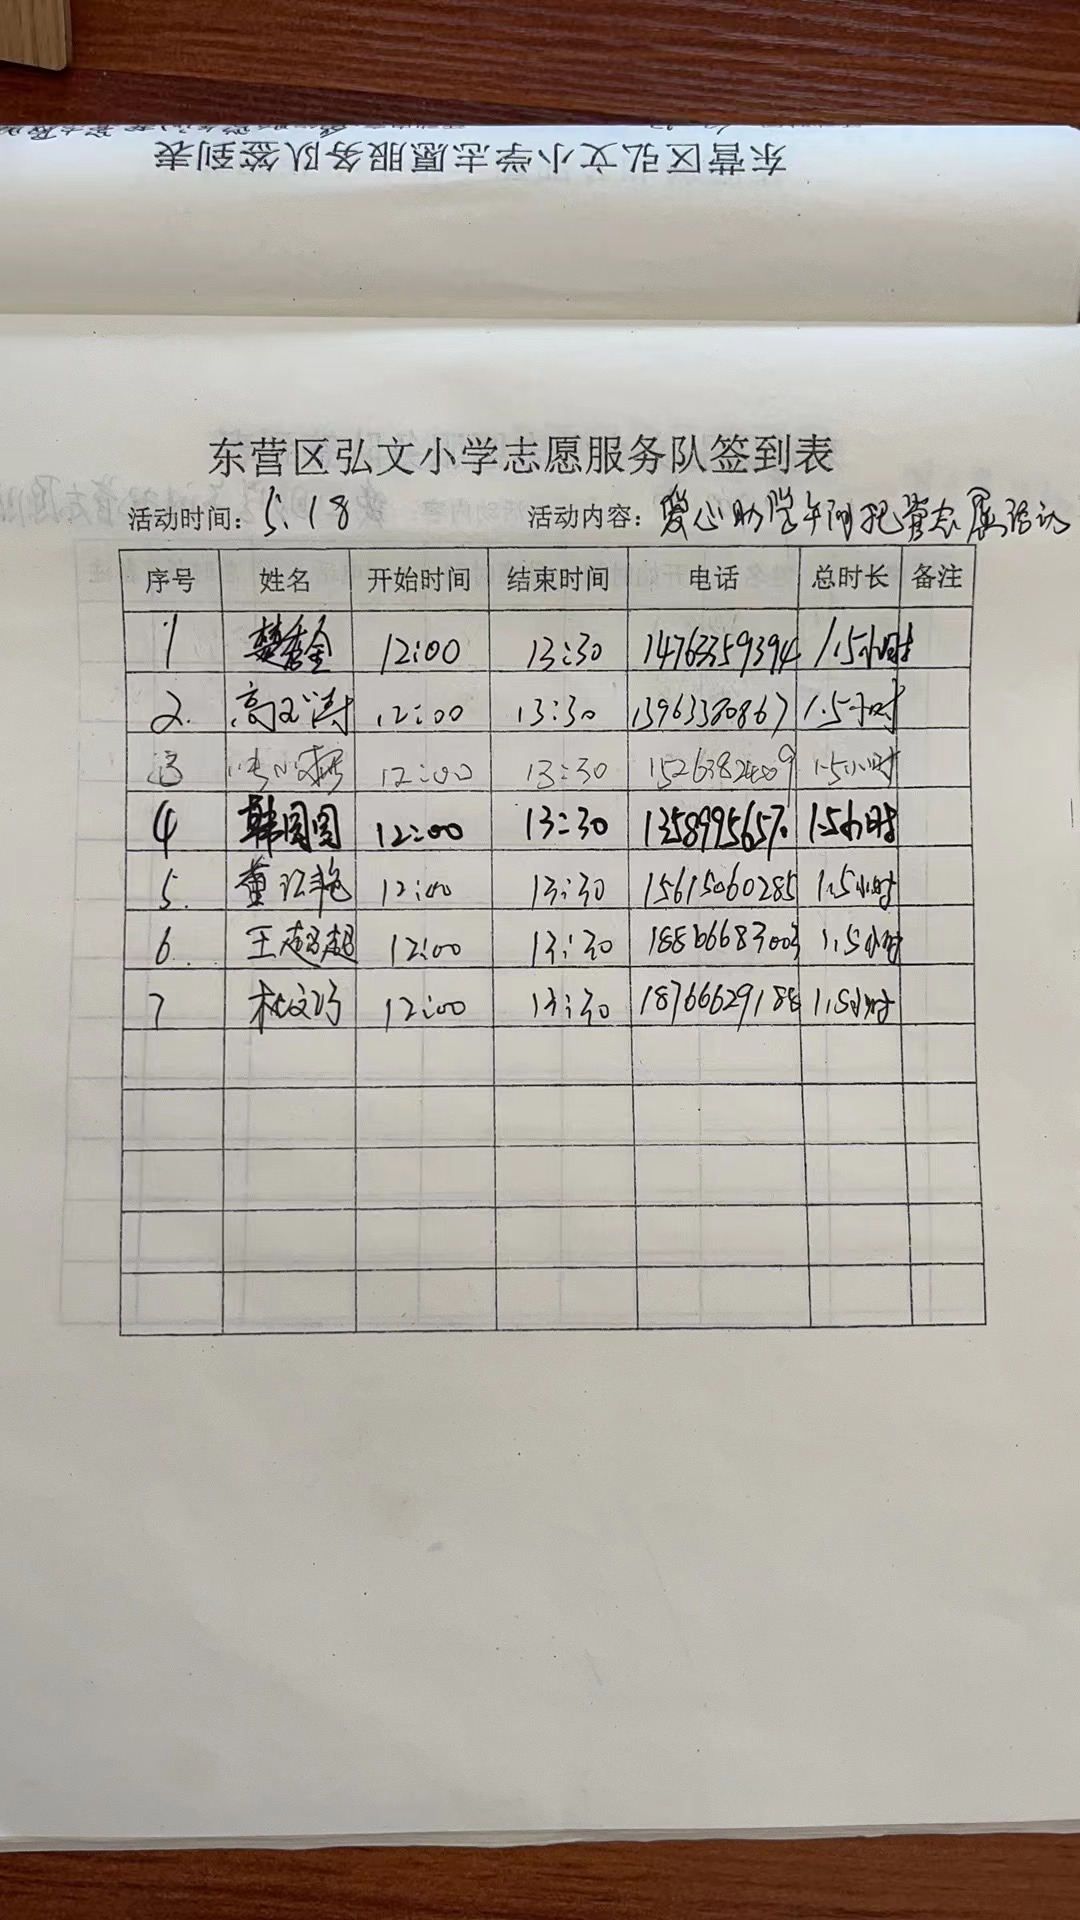 东营区弘文小学志愿服务队签到表
东营区弘文小学志愿服务队签到表
活动时间: 5.18 活动内容: 爱心助学午间托管志愿活动
序号 姓名 开始时间 结束时间 电话 总时长 备注
1 樊秀全 12:00 13:30 14763359394 1.5小时
2. 高 涛 12:00 13:30 13963380867 1.5小时
3 12:00 13:30 15263824809 1.5小时
4 韩圆圆 12:00 13:30 1358995657 1.5小时
5. 董红艳 12:00 13:30 15615060285 1.5小时
6. 王超超 12:00 13:30 18866683003 1.5小时
7 杜文巧 12:00 13:30 18766629188 1.5小时